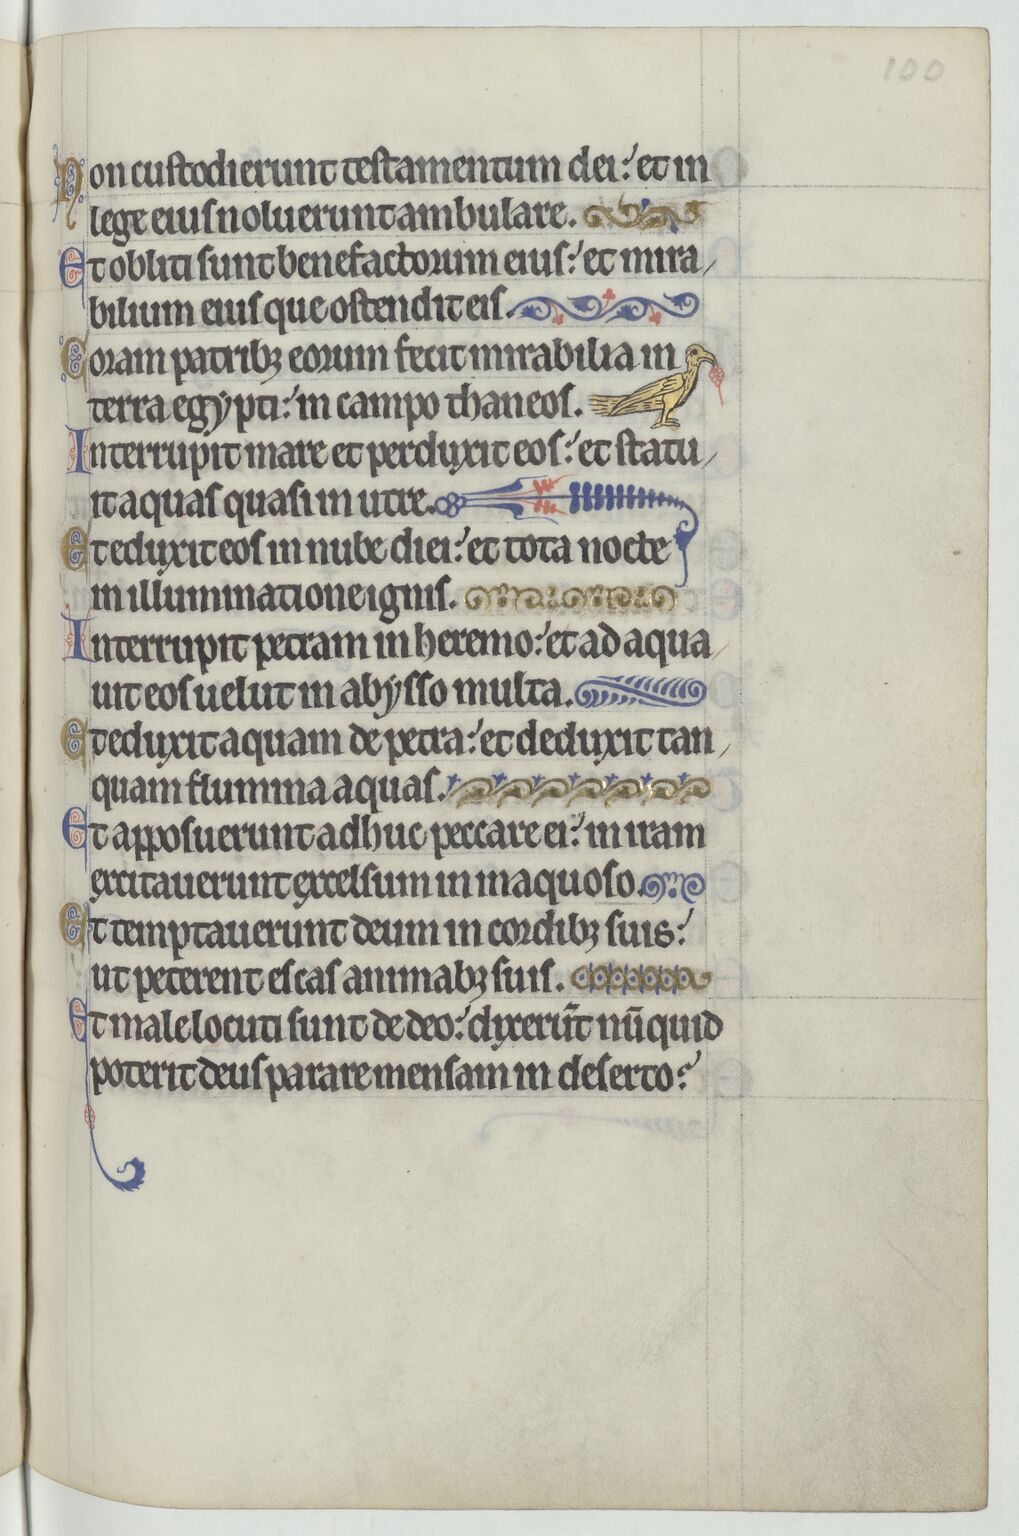 100
Non custodierunt testamentum dei: et in
lege eius noluerunt ambulare.
Et obliti sunt benefactorum eius: et mira/
bilium eius que ostendit eis.
Coram patribꝫ eorum fecit mirabilia in
terra egypti: in campo thaneos.
Interrupit mare et perduxit eos: et statu/
it aquas quasi in utre.
Et eduxit eos in nube diei: et tota nocte
in illuminatione ignis.
Interrupit petram in heremo: et ad aqua/
uit eos uelut in abysso multa.
Et eduxit aquam de petra: et deduxit tan/
quam flumina aquas.
Et apposuerunt adhuc peccare ei: in iram
excitauerunt excelsum in inaquoso.
Et temptauerunt deum in cordibꝫ suis:
ut peterent escas animabꝫ suis.
Et male locuti sunt de deo: dixerūt nūquid
poterit deus parare mensam in deserto: